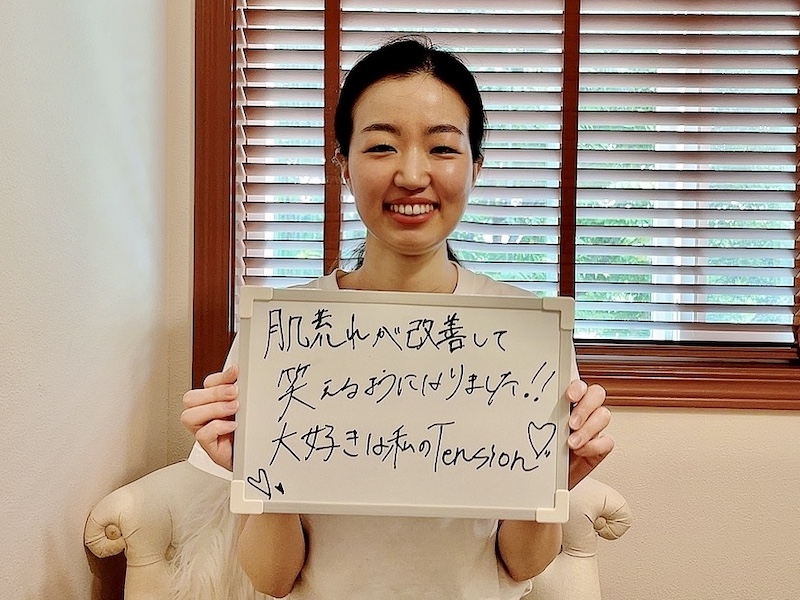 肌荒れが改善して
笑えるようになりました!!
大好きは私のTension♡